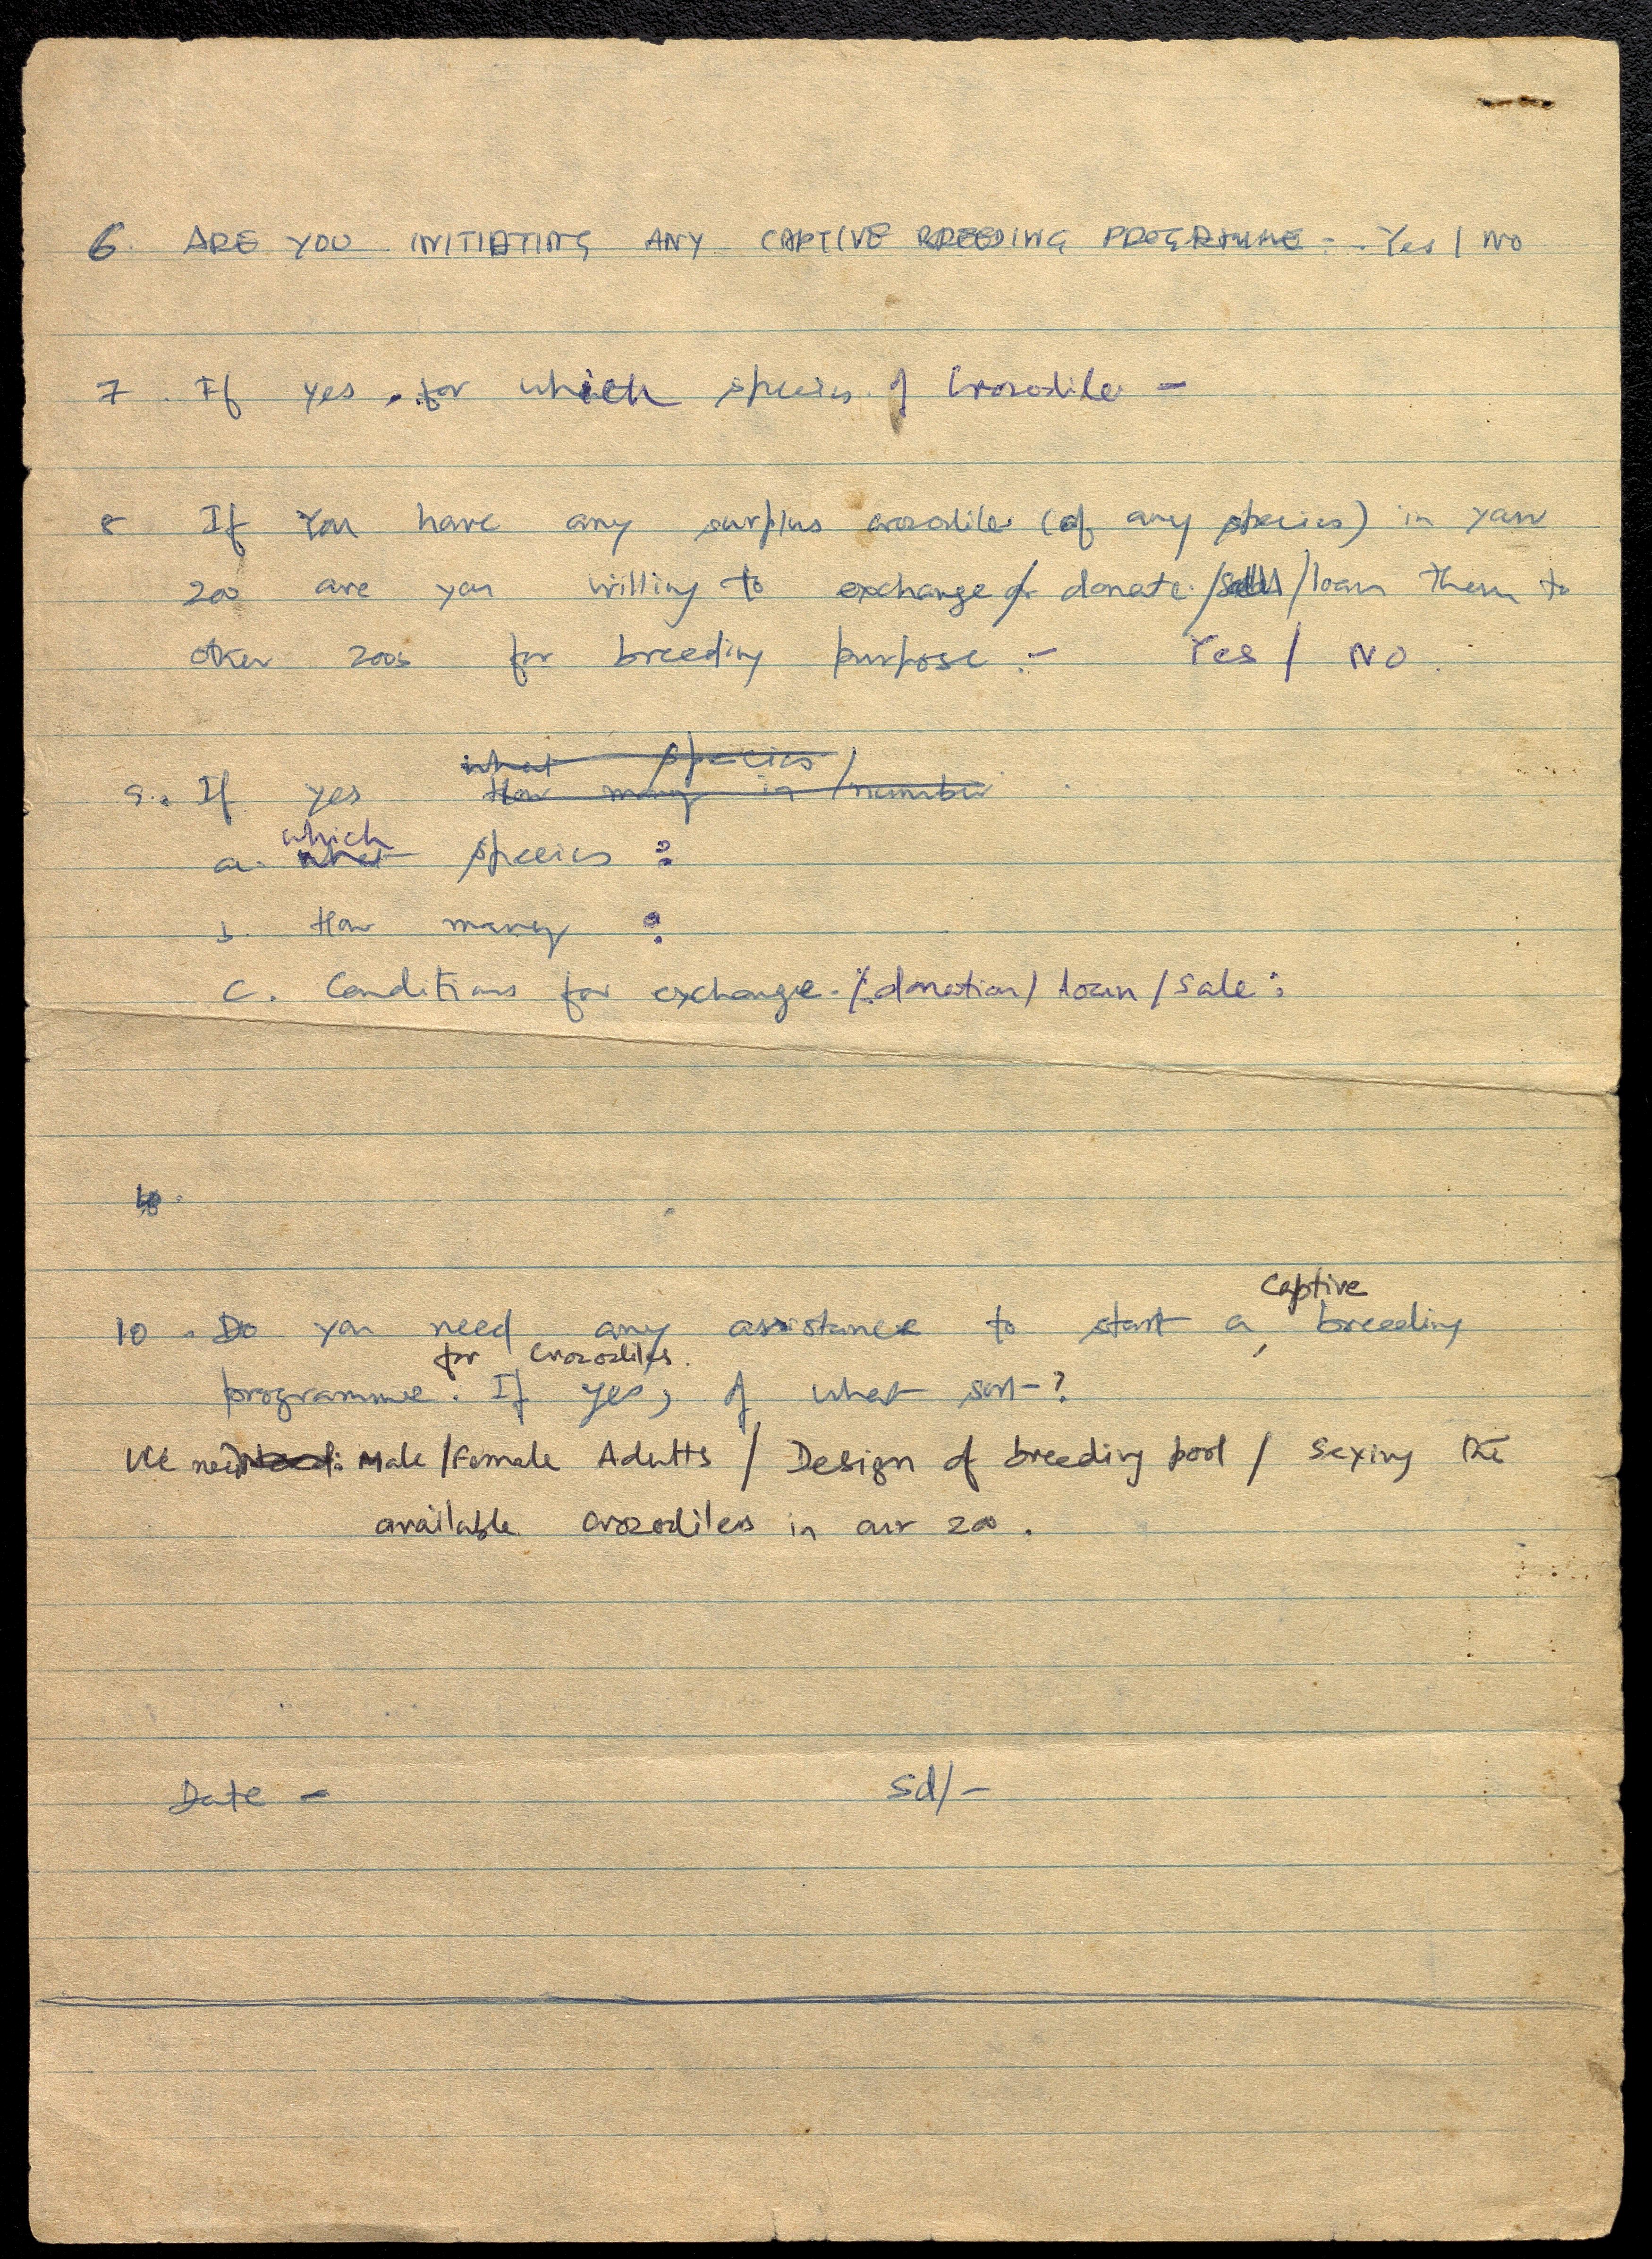 6. ARE YOU INITIATING ANY CAPTIVE BREEDING PROGRAMME - Yes / NO
7. If yes, for which species of Crocodile -
8 If You have any surplus crocodile (of any species) in your
zoo are you willing to exchange / donate / / loan them to
other zoos for breeding purpose :- Yes / NO.
what species /
9. If yes How many in number
which
a. what species :
b. How many :
C. Conditions for exchange / donation / loan / Sale :
10.
Captive
10. Do you need any assistance to start a breeding
for Crocodiles.
programme. If yes, of what sort?
We need Male / Female Adults / Design of breeding pool / Sexing the
available crocodiles in our zoo.
Date - Sd/-